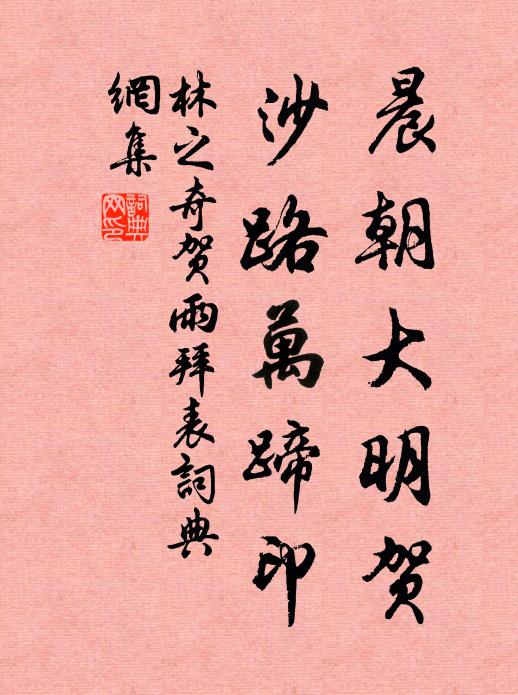 晨朝大明賀
沙路萬蹄印
林之奇賀雨拜表詞典
網集
詞典
网印